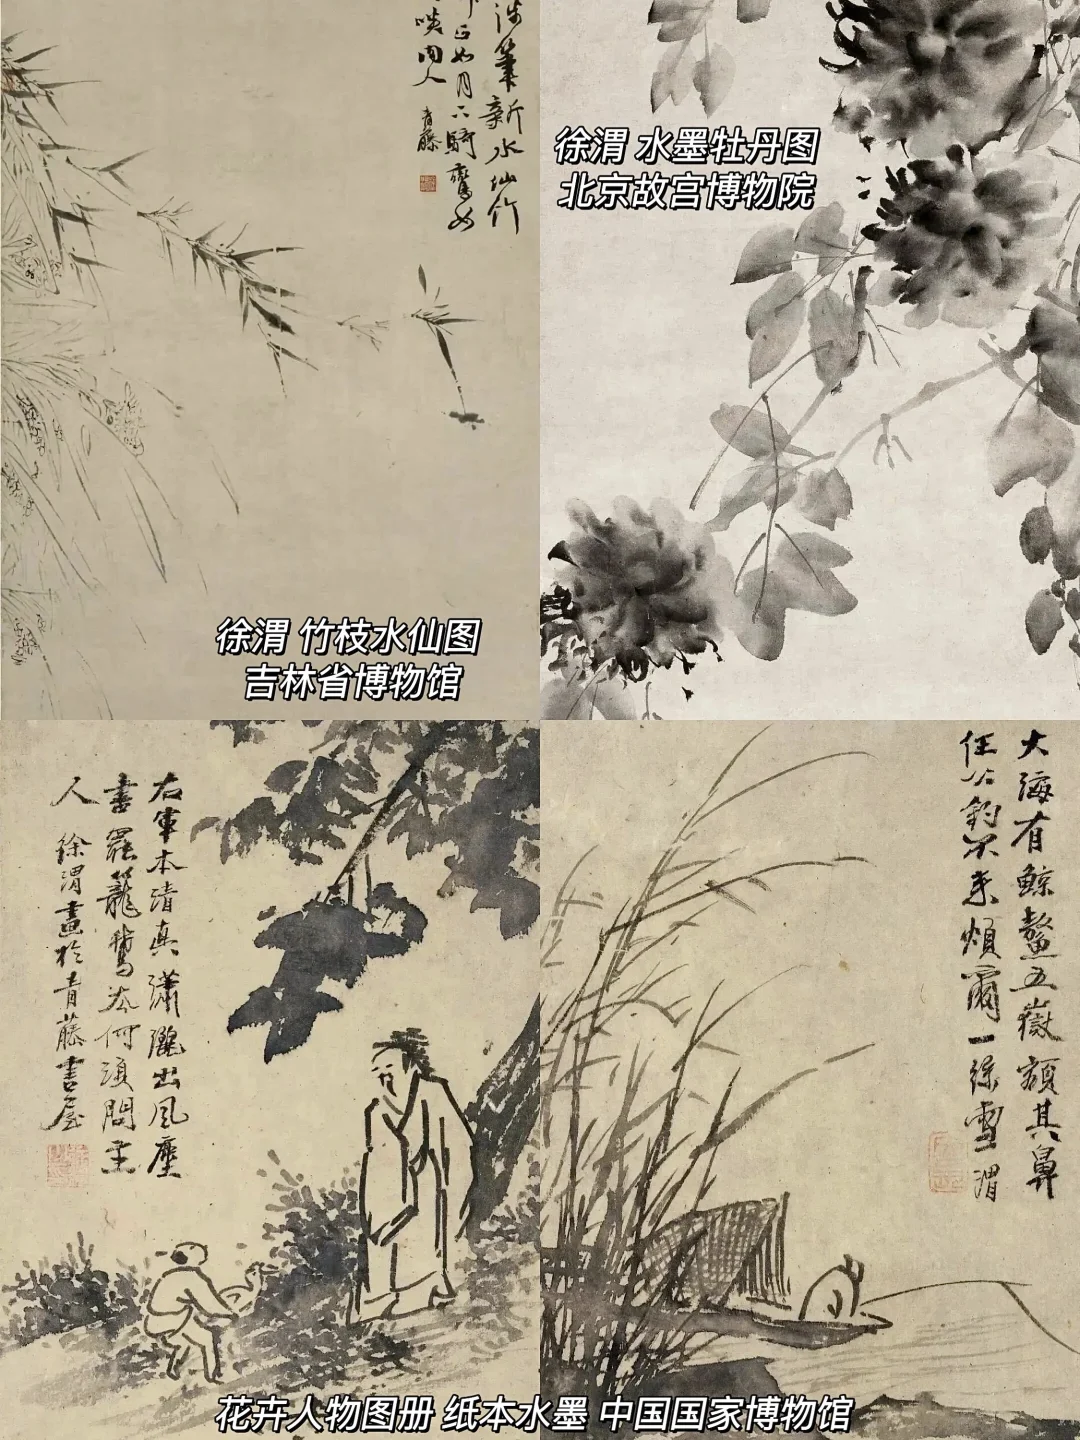 浅笔新水仙竹
下正如月下騎鸞女
啖肉人
青藤
徐渭 水墨牡丹图
北京故宫博物院
徐渭 竹枝水仙图
吉林省博物馆
右軍本清真瀟灑出風塵
書罷籠鵞去何須問主
人 徐渭畫於青藤書屋
大海有鲸鰲五嶽額其鼻
任公釣不來煩爾一絲雪 渭
花卉人物图册 纸本水墨 中国国家博物馆